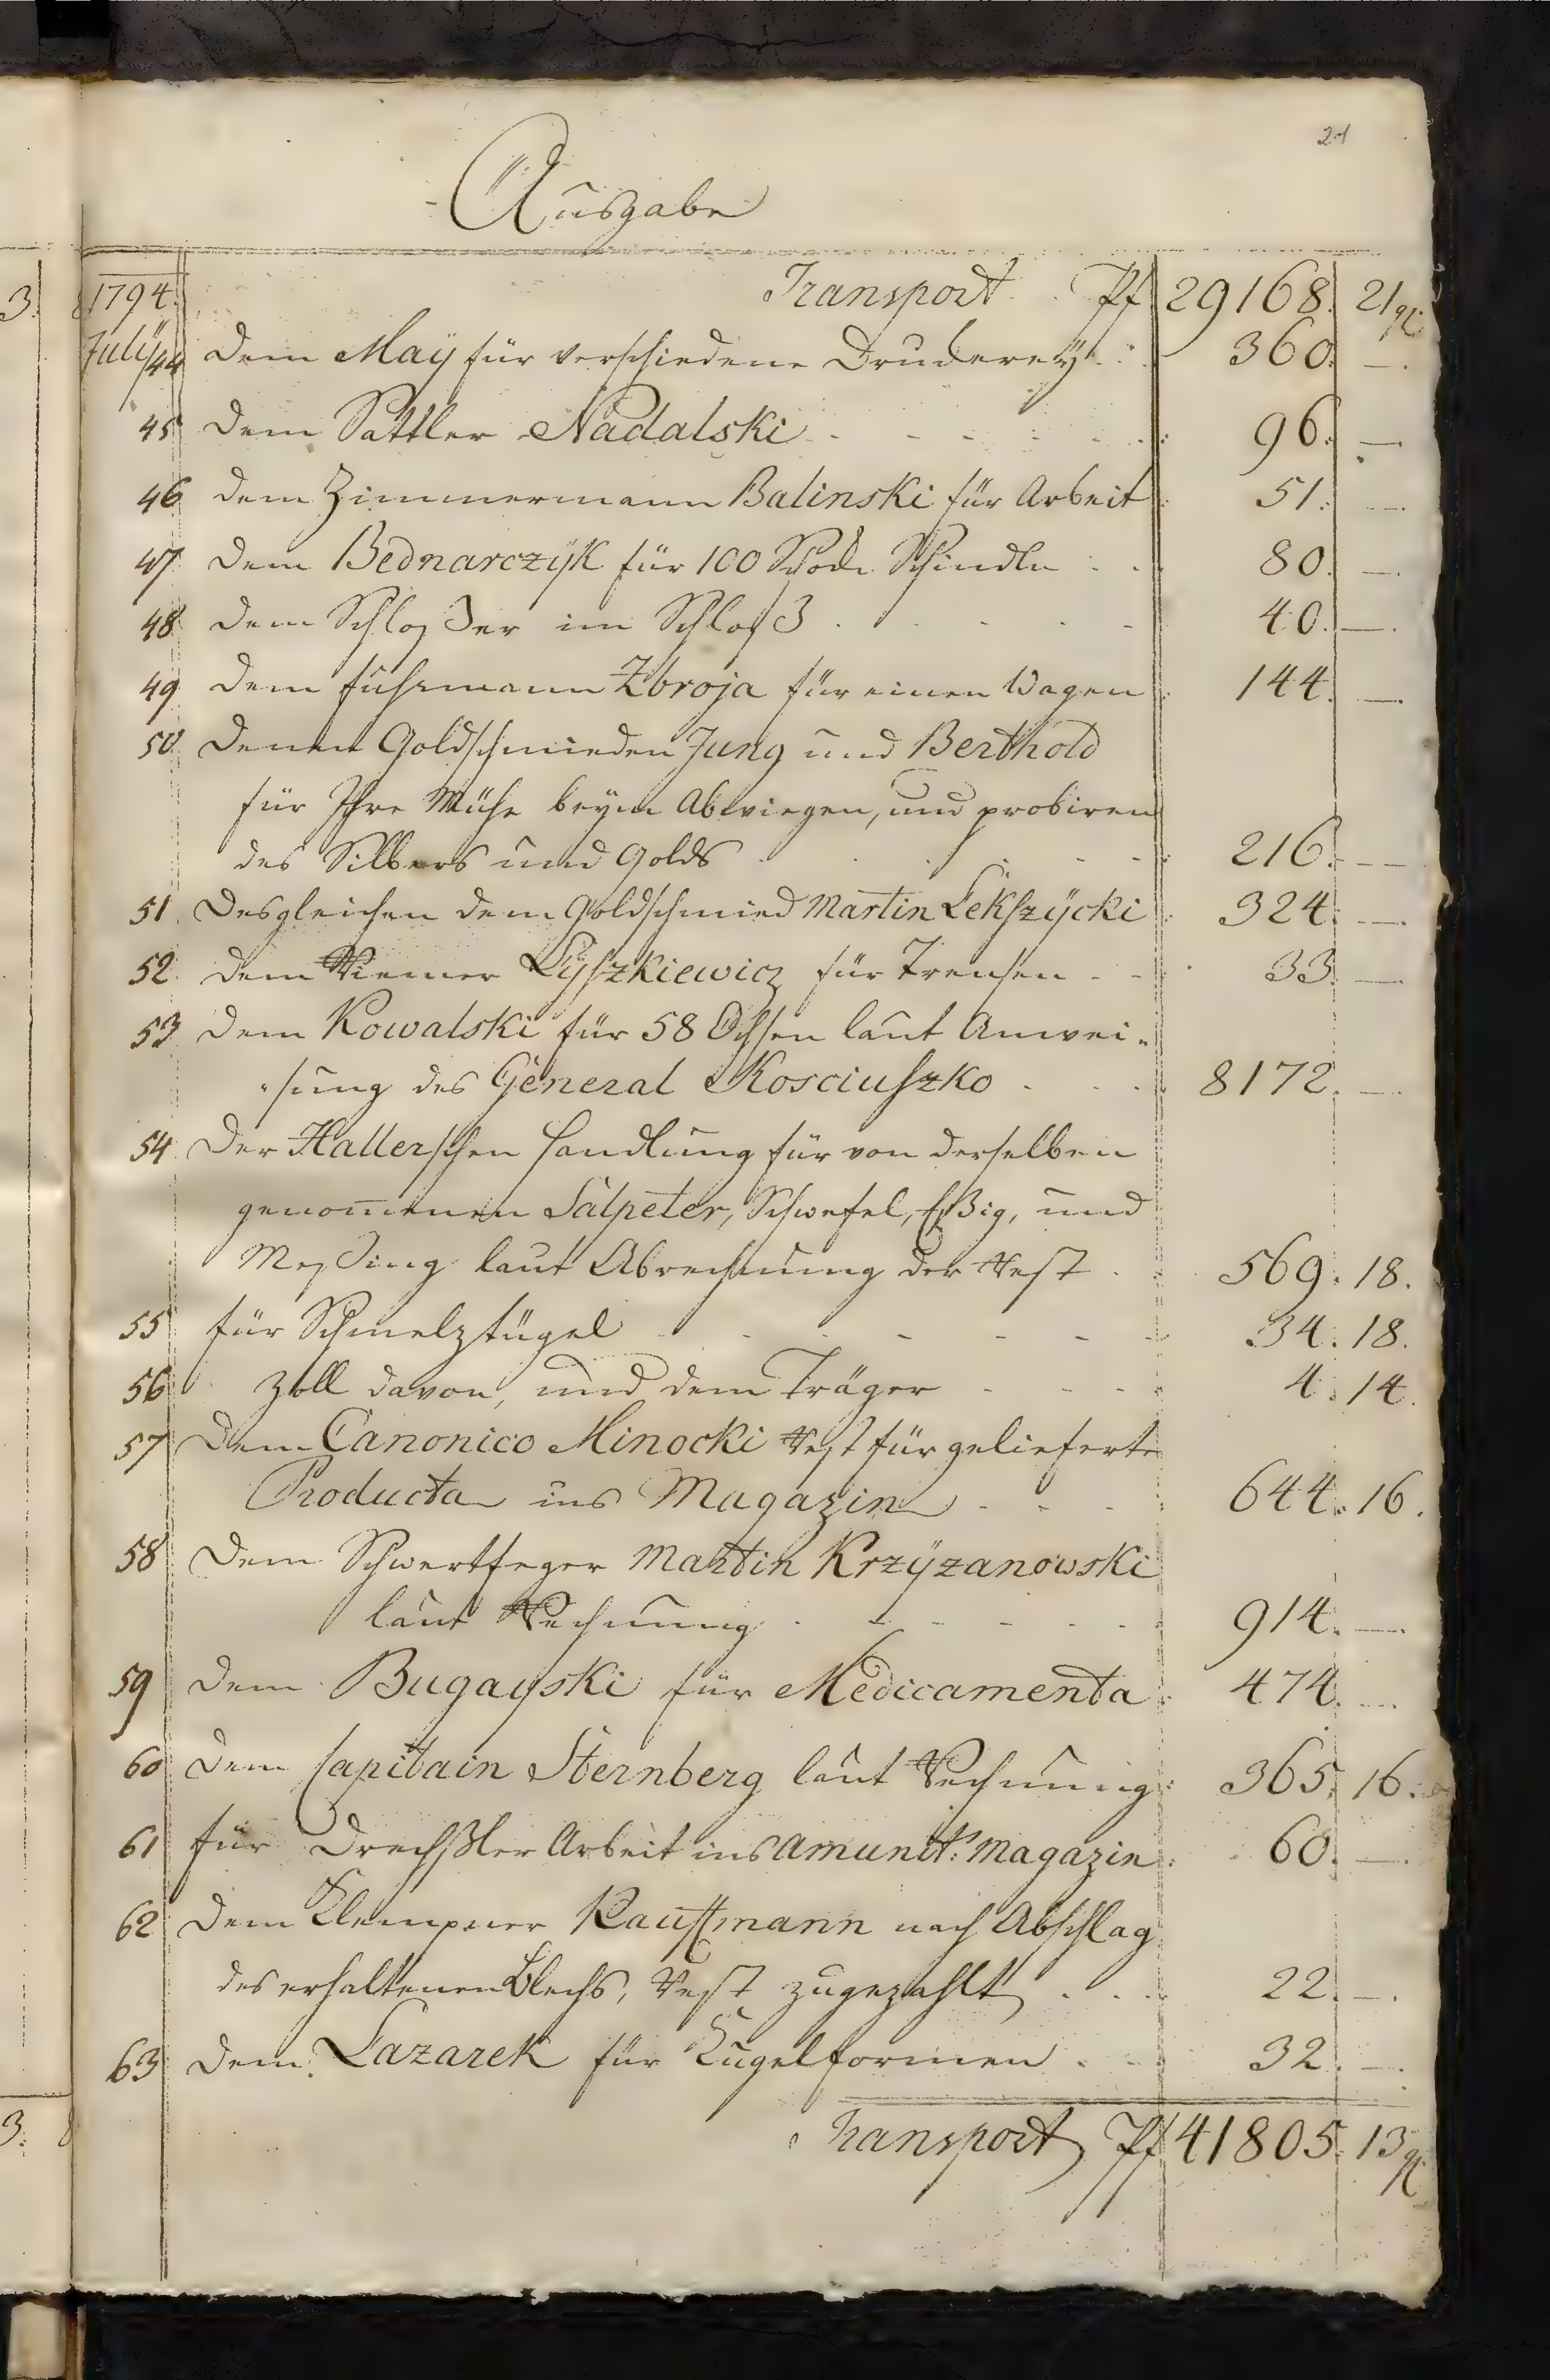 21
Ausgabe
1794. Transport Pf 29168. 21 gl
July 44 Dem Maÿ für verschiedene Druckereÿ 360. —.
45 Dem Sattler Nadalski 96. —
46 dem Zimmermann Balinski für Arbeit 51. —
47 Dem Bednarczÿk für 100 Schock Schindln 80. —
48 dem Schloßer im Schloß 40. —.
49 dem fuhrmann Zbroja für einen Wagen 144. —
50 Denen Goldschmieden Jung und Berthold
für Ihre Mühe beÿm Abwiegen, und probiren
des Silbers und Golds 216. —
51 Desgleichen dem Goldschmied Martin Lekszÿcki 324. —
52 dem Riemer Lÿszkiewicz für Trensen 33. —
53 dem Kowalski für 58 Ochsen laut Anwei-
-sung des General Kosciuszko 8172. —
54 Der Hallerschen Handlung für von derselben
genom̅enen Salpeter, Schwefel, Eßig, und
Meßing laut Abrechnung der Rest 569. 18.
55 für Schmelztügel 34. 18.
56 Zoll davon, und dem Träger 4. 14.
57 Dem Canonico Minocki Rest für gelieferte
Producta ins Magazin 644. 16.
58 Dem Schwertfeger Martin Krzÿzanowski
laut Rechnung 914. —
59 dem Bugayski für Medicamenta 474. —
60 dem Capitain Sternberg laut Rechnung 365. 16.
61 für Drechßler Arbeit ins amunit: Magazin 60. —
62 dem Klempner Kauffmann nach Abschlag
des erhaltenen Blechs, Rest zugezahlt 22. —.
63 dem Lazarek für Kugelformen 32. —.
Transport Pf 41805. 13 gl